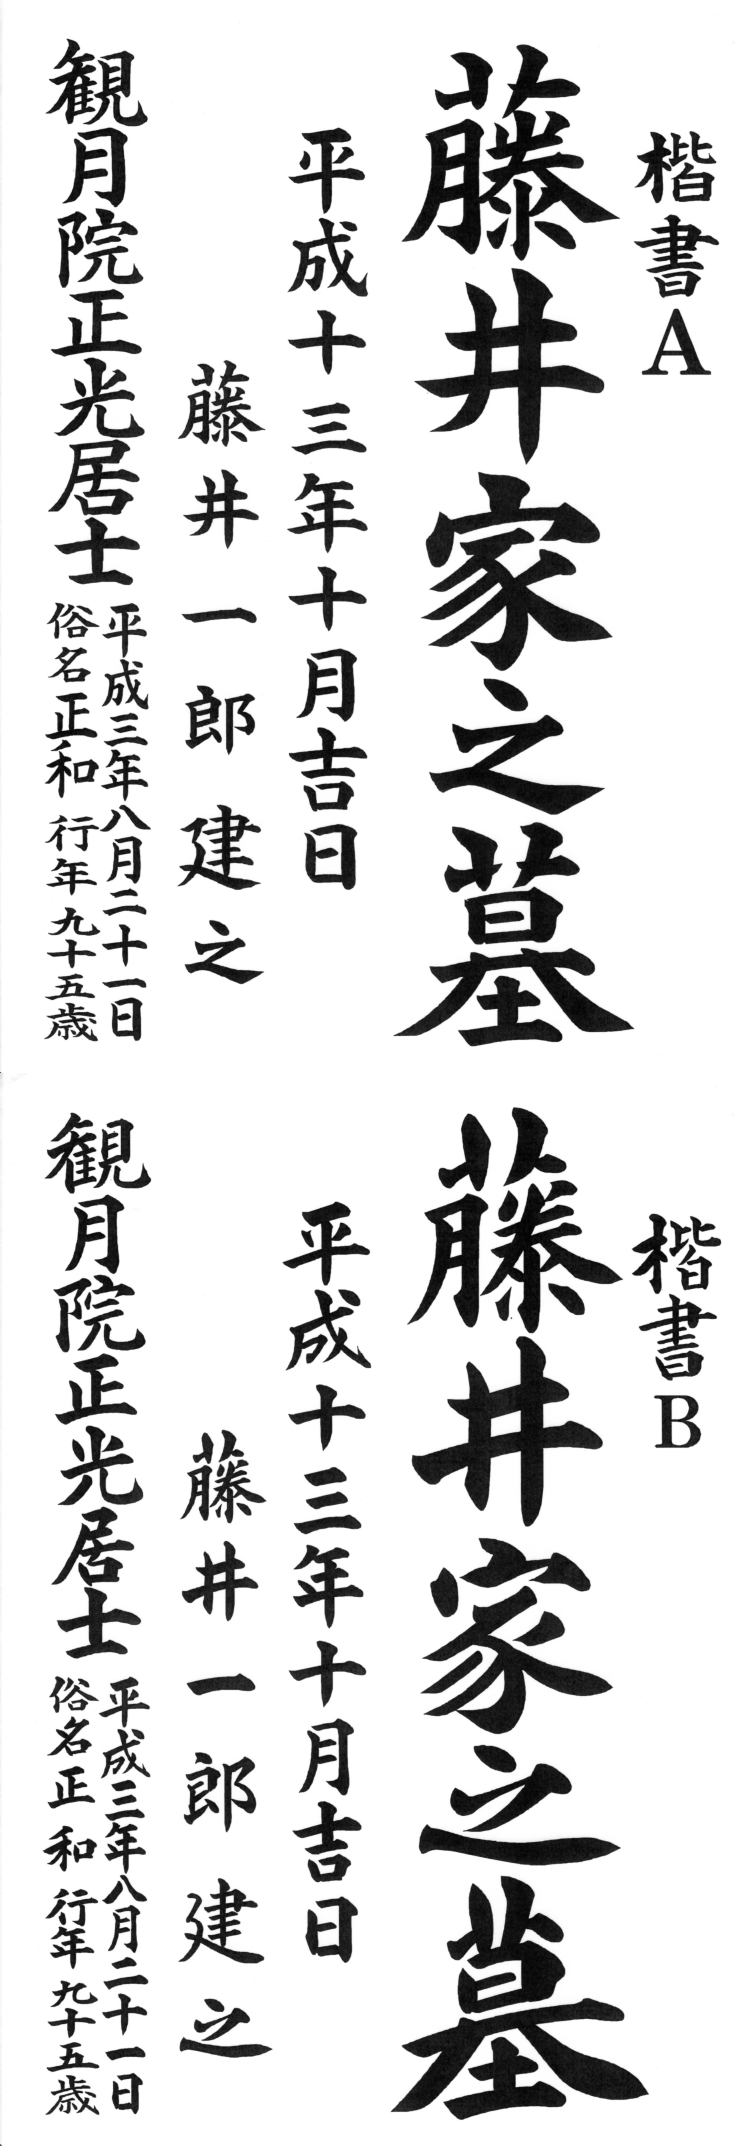 楷書A
藤井家之墓
平成十三年十月吉日
藤井一郎建之
観月院正光居士
平成三年八月二十一日
俗名正和 行年九十五歳
楷書B
藤井家之墓
平成十三年十月吉日
藤井一郎建之
観月院正光居士
平成三年八月二十一日
俗名正和 行年九十五歳